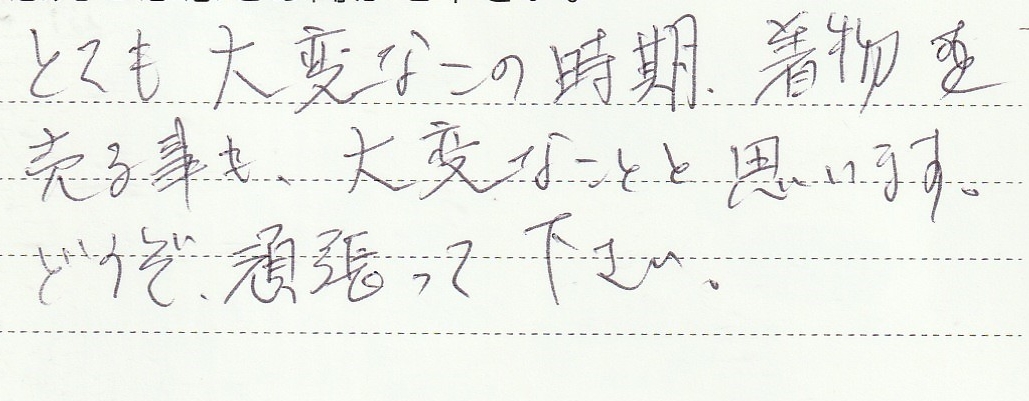 とても大変なこの時期、着物を
売る事も、大変なことと思います。
どうぞ、頑張って下さい。